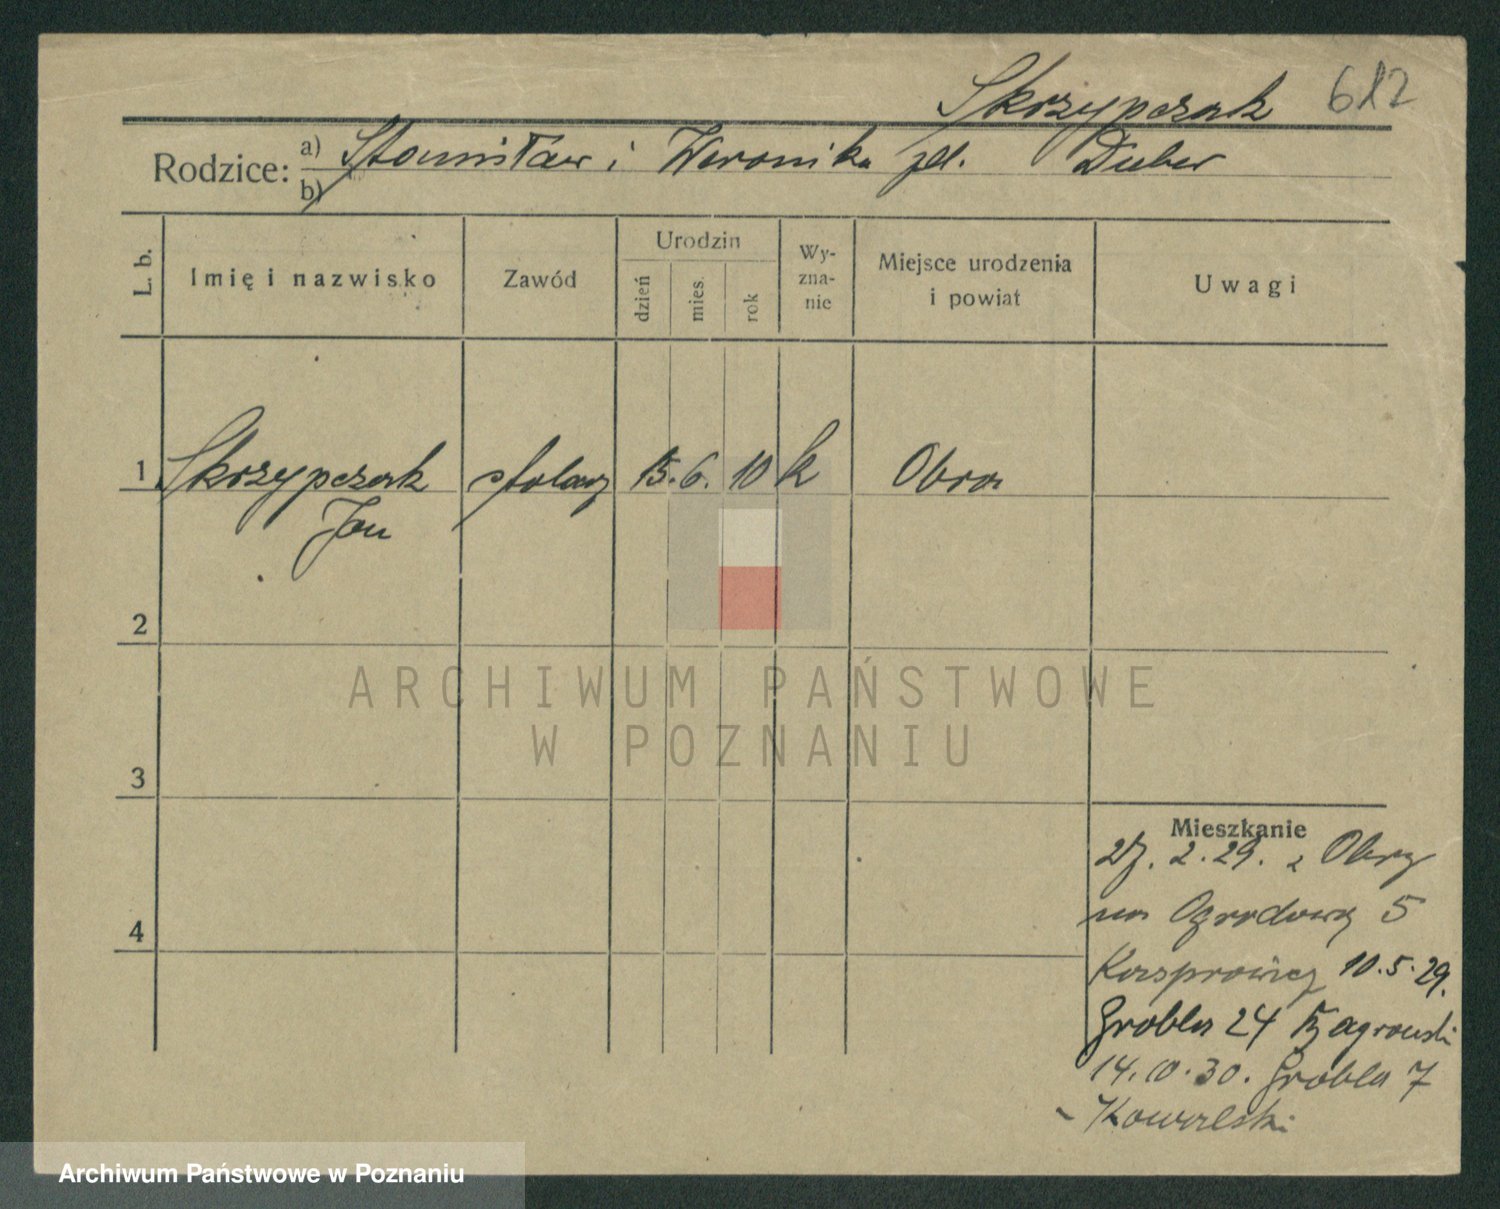 Skrzypczak 612
Rodzice: a) Stanisław i Weronika zd. Duber
b)
L. b.
Imię i nazwisko
Zawód
Urodzin
dzień
mies.
rok
Wy-
zna-
nie
Miejsce urodzenia
i powiat
Uwagi
1 Skrzypczak stolarz 15. 6. 10 k Obra
Jan
2
3
4
Mieszkanie
2. 29. z Obry
na Ogrodową 5
10.5.29.
Grobla 24
14.10.30. Grobla 7
- Kowalski
ARCHIWUM PAŃSTWOWE
W POZNANIU
Archiwum Państwowe w Poznaniu